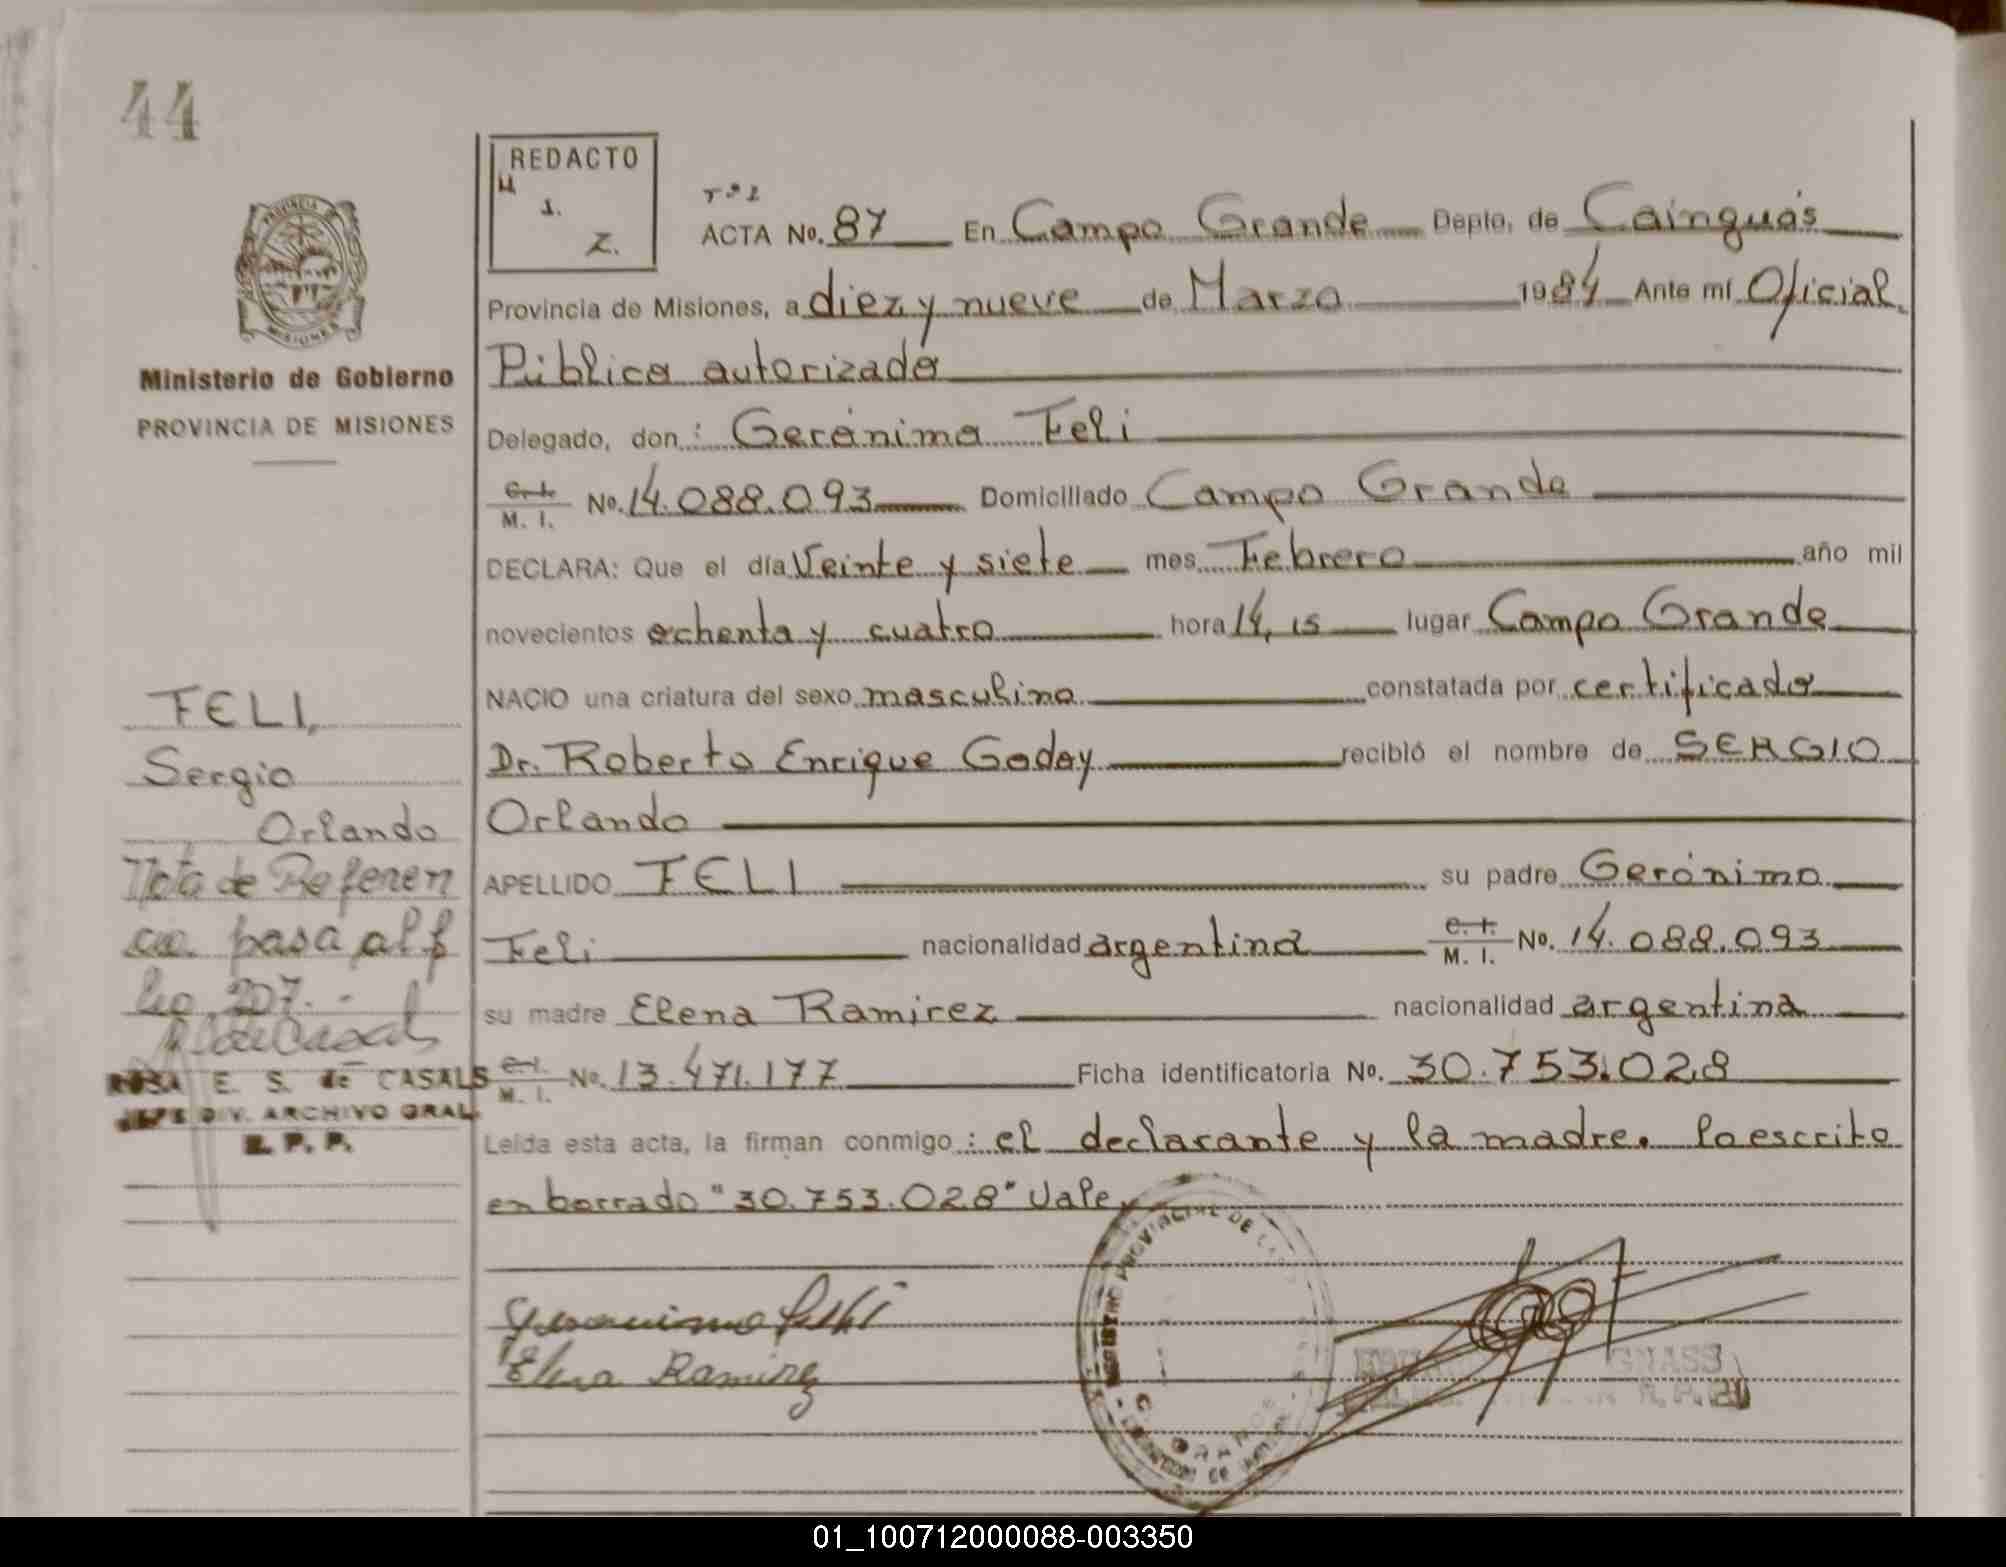 44
PROVINCIA DE
MISIONES
Ministerio de Gobierno
PROVINCIA DE MISIONES
FELI,
Sergio
Orlando
Nota de Referen
cia. pasa al f
lio 207.-
ROSA E. S. de CASALS
JEFE DIV. ARCHIVO GRAL
R. P. P.
REDACTO
H
J.
Z.
Tº 1
ACTA No. 87 En Campo Grande Depto. de Cainguás
Provincia de Misiones, a diez y nueve de Marzo 1984 Ante mí Oficial
Público autorizado
Delegado, don: Gerónimo Feli
C. I. M. I. No. 14.088.093 Domiciliado Campo Grande
DECLARA: Que el día Veinte y siete mes Febrero año mil
novecientos ochenta y cuatro hora 14,15 lugar Campo Grande
NACIO una criatura del sexo masculino constatada por certificado
Dr. Roberto Enrique Godoy recibió el nombre de SERGIO
Orlando
APELLIDO FELI su padre Gerónimo
Feli nacionalidad argentina C. I. M. I. No. 14.088.093
su madre Elena Ramirez nacionalidad argentina
C. I. M. I. No. 13.471.177 Ficha identificatoria No. 30.753.028
Leida esta acta, la firman conmigo: el declarante y la madre. lo escrito
en borrado "30.753.028" Vale
Elena Ramirez
REGISTRO PROVINCIAL DE LAS
C. GRANDE
01_100712000088-003350